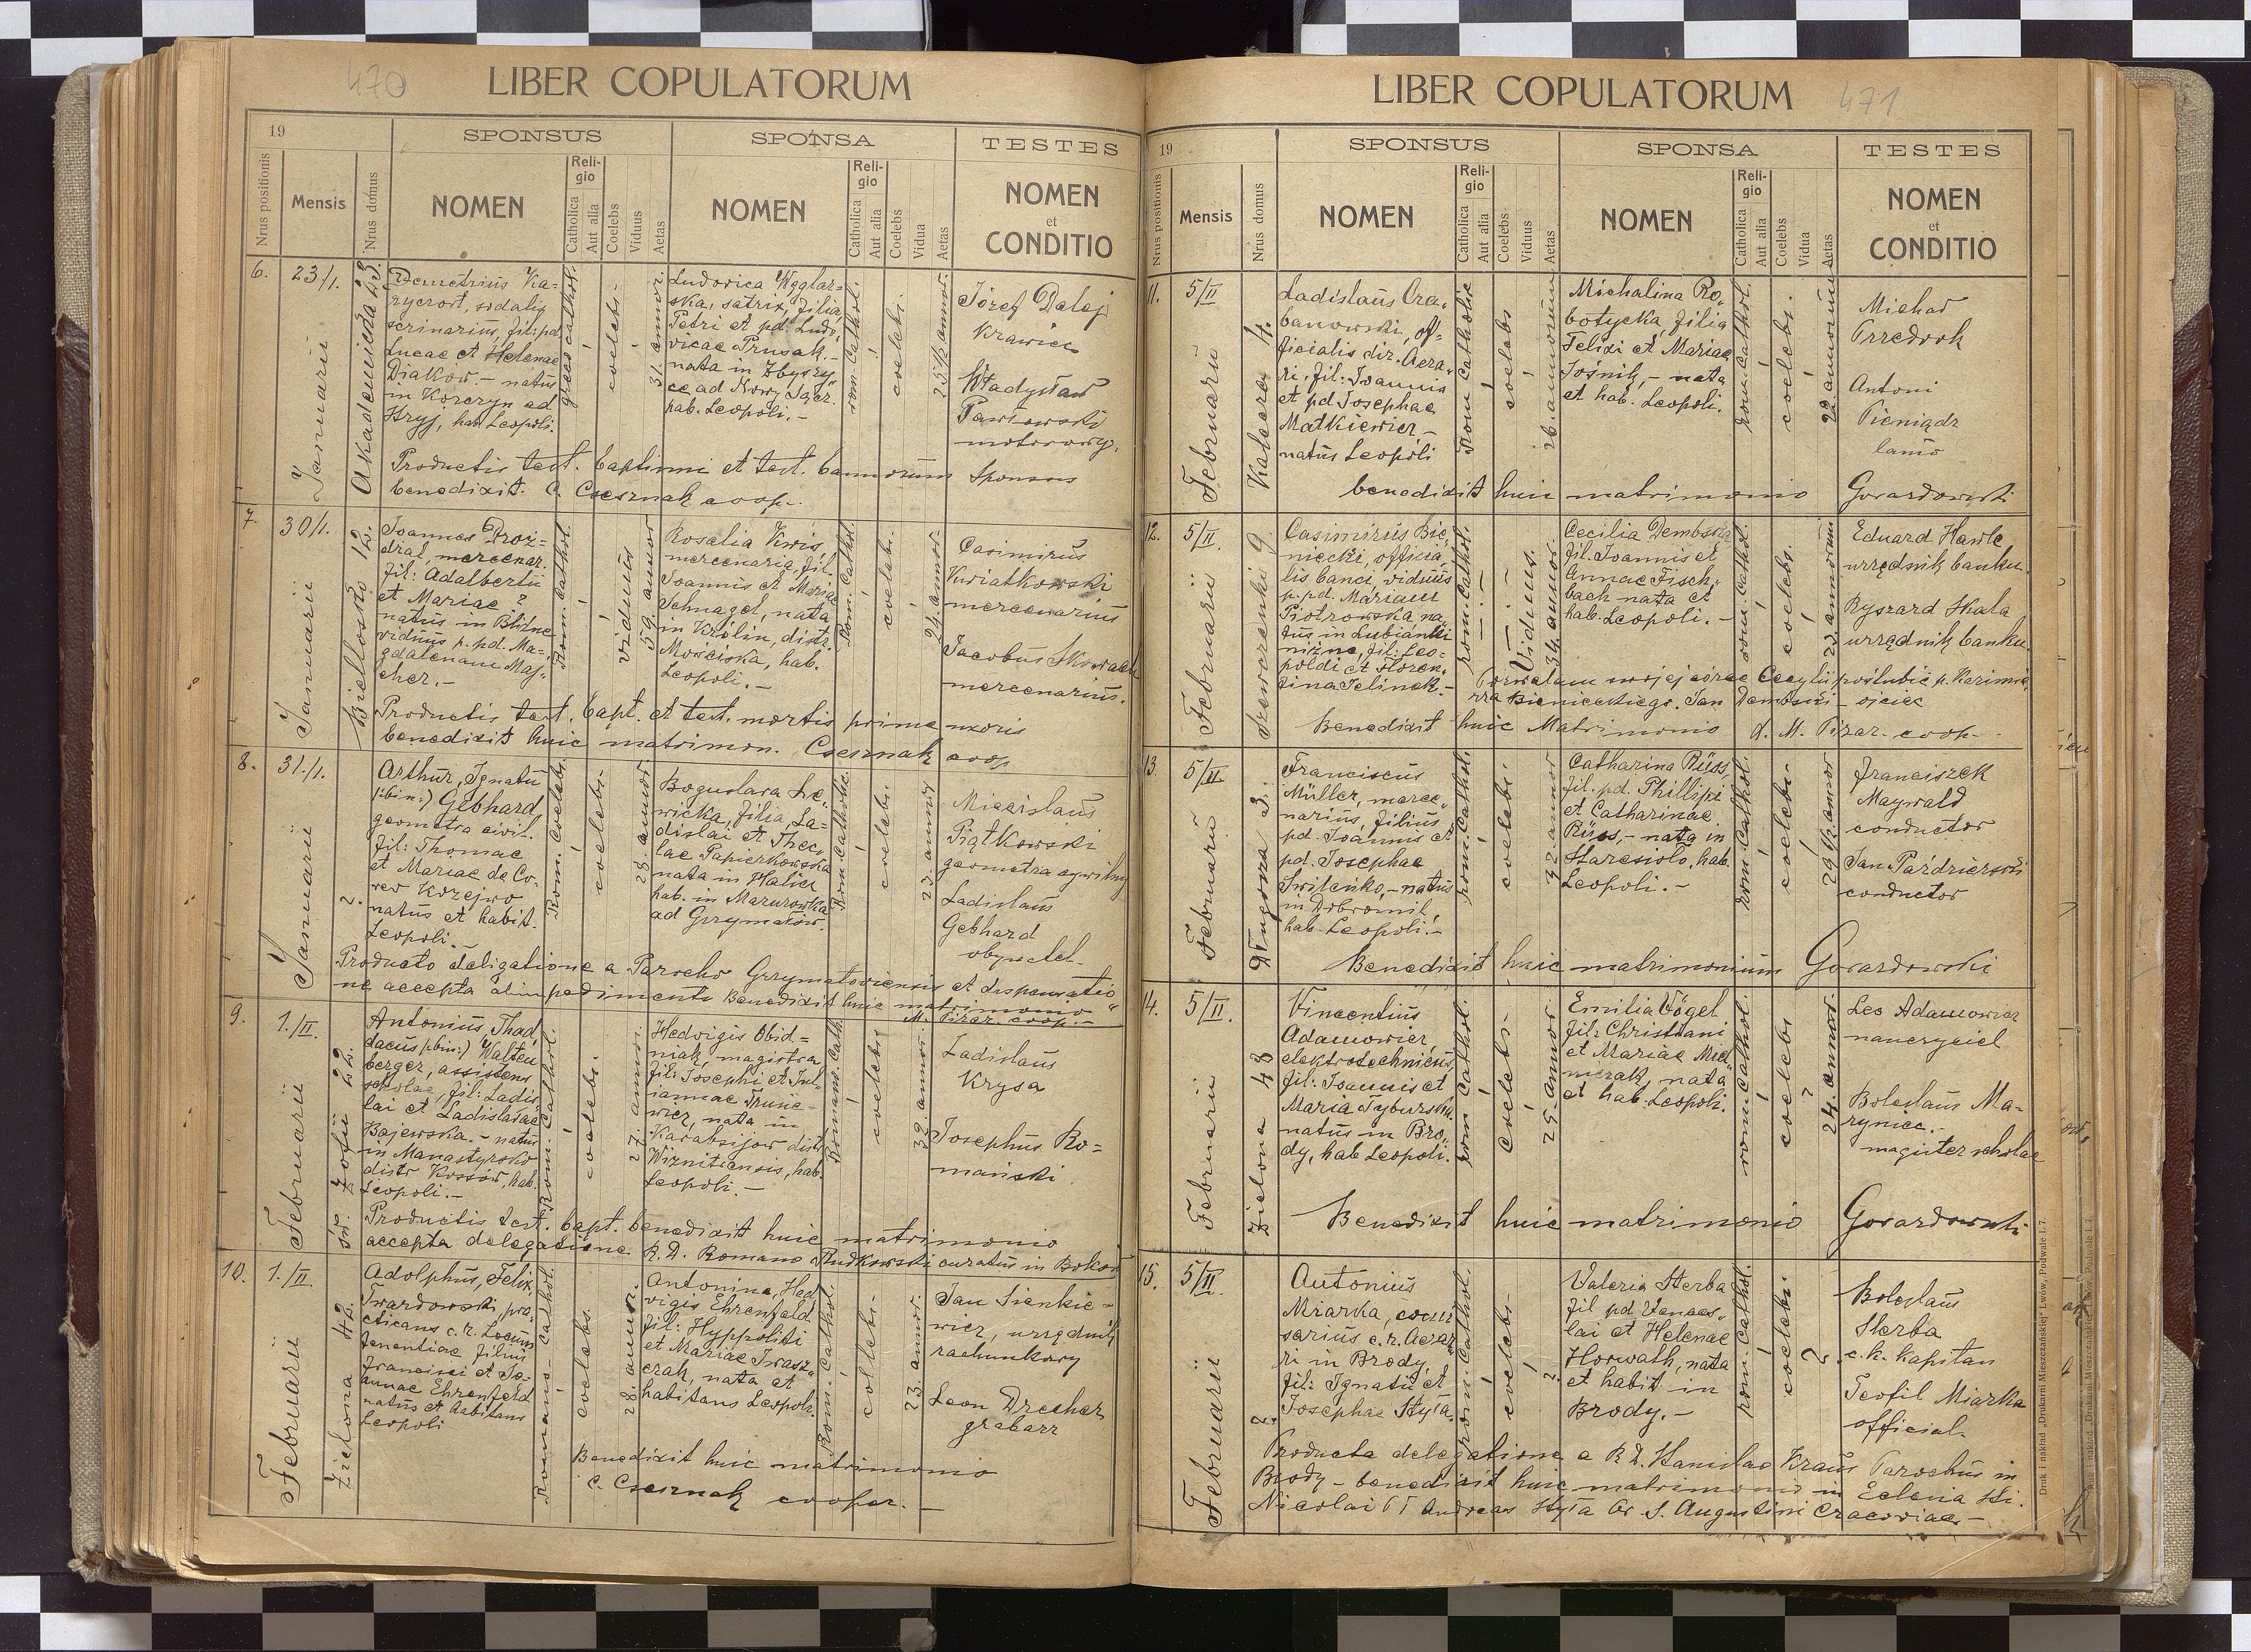 470
LIBER COPULATORUM
19
SPONSUS
SPONSA
TESTES
Nrus positionis
Mensis
Nrus domus
NOMEN
Reli-
gio
Catholica
Aut alia
Coelebs
Viduus
Aetas
NOMEN
Reli-
gio
Catholica
Aut alia
Coelebs
Vidua
Aetas
NOMEN
et
CONDITIO
6.
23/I.
Januarii
Akademicka 23.
Demetrius Ka-
sodalis
scrinarius, fil: pd.
Lucae et Helenae
Diaków - natus
in Korczyn ad
Stryj, hab. Leopoli.
greco cathol.
coelebs -
31. annor.
Ludovica Węglar=
ska, satrix, filia
Petri et pd. Ludo„
vicae Prusak. -
nata in Zbyszy„
ce ad Nowy Sącz.
hab. Leopoli. -
rom. cathol.
coelebs.
25 1/2 annor.
Józef Dalej
Krawiec
Władysław
Pawłowski
motorowy.
Productis test. baptismi et test. bannorum sponsus
benedixit. C. Csesznak coop.
7.
30/I.
Januarii
12.
Joannes Droz=
dzal, mercenar.
fil: Adalberti
et Mariae ?
natus in Blizne
viduus p. pd. Ma=
gdalenam Maj„
cher. -
Rom. cathol.
viduus
59. annor
Rosalia Kwis,
mercenaria, fil.
Joannis et Mariae
Schnagel, nata
in Królin, distr.
Mościska, hab.
Leopoli. -
Rom. cathol.
coelebs.
24. annor.
Casimirus
Kwiatkowski
mercenarius
Jacobus Skowach
mercenarius.
Productis test. bapt. et test. mortis prime uxoris
benedixit huic matrimon. Csesznak coop
8.
31./I.
Januarii
2.
Arthur, Ignatii
(:bin:) Gebhard
geometra civil.
fil: Thomae
et Mariae de Co„
rvo Krzejwo
natus et habit.
Leopoli. -
Rom. coelebs.
coelebs.
28. annor
Boguslava Le„
wicka, filia, La=
dislai et Thec„
lae Papierkowska
nata in Halicz
hab. in Mazurowka
ad Grzymałów.
Rom. catholic.
coelebs.
23. annor
Miecislaus
Piątkowski
geometra cywilny
Ladislaus
Gebhard
obywatel.
Producto deligatione a Parocho Grzymałoviensis et dispensatio„
ne accepta ab impedimento Benedixit huic matrimonio
M. Pizar. coop. -
9.
1./II.
Februarii
św. Zofii 22.
Antonius, Thad„
daeus (:bin:) Walten
berger, assistens
scholae, fil: Ladis„
lai et Ladislavae
Bajewska. - natus
in Manastyrsko
distr Kossów, hab.
Leopoli. -
Rom. Cathol.
coelebs.
27. annor.
Hedvigis Obid=
niak, magistra
fil: Josephi et Jul„
iannae Trusie=
wicz, nata in
Karabczijow distr
Wiznitcensis, hab.
Leopoli. -
Romano Cath.
coelebs
39. annor.
Ladislaus
Krysa
Josephus Ro=
mański
Productis test. bapt. benedixit huic matrimonio
accepta delegatione. R. D. Romano Rudkowski curatus in
10.
1./II.
Februarii
Zielona 42.
Adolphus, Felix,
Twardowski, pra„
cticans c. r. Locum
tenentiae filius
Francisci et Jo„
annae Ehrenfeld
natus et habitans
Leopoli
Romano - cathol.
coelebs.
28. annor.
Antonina, Hed„
vigis Ehrenfeld
fil: Hyppoliti
et Mariae Iwasz„
czak, nata et
habitans Leopoli.
Rom. Cathol.
coelebs -
23. annor.
Jan Sienkie-
wicz, urzędnik
rachunkowy
Leon Drecher
grabarz
Benedixit huic matrimonio
C. Csesznak cooper. -
LIBER COPULATORUM
471
19
SPONSUS
SPONSA
TESTES
Nrus positionis
Mensis
Nrus domus
NOMEN
Reli-
gio
Catholica
Aut alia
Coelebs
Viduus
Aetas
NOMEN
Reli-
gio
Catholica
Aut alia
Coelebs
Vidua
Aetas
NOMEN
et
CONDITIO
11.
5/II
Februarii
Kalecza 4.
Ladislaus Cra„
banowski, of„
ficialis dir. Aera„
ri, fil: Joannis
et pd Josephae
Matkiewicz, -
natus Leopoli
Rom Catholic
coelebs
26. annorum
Michalina Ro„
botycka, filia
Felixi et Mariae
Jośnik, - nata
et hab. Leopoli.
rom. cathol.
coelebs.
22. annorum
Michał
Przedrok
Antoni
Pieniądz
benedixit huic matrimonio Gorazdowski
12.
5/II.
Februarii
Szewczenki 9.
Casimirus Bie„
niecki, officia„
lis banci, viduus
p. pd. Mariam
Piotrowska na„
tus in Lubianki
niżne, fil: Leo=
poldi et Floren„
tina Jelinek. -
rom. cathol.
Viduus.
34. annor.
Cecilia Dembska
fil. Joannis et
Annae Fisch„
bach nata et
hab. Leopoli. -
rom. cathol.
coelebs.
23 annorum
Eduard Hawle
urzędnik banku.
Ryszard Skala
urzędnik banku.
Pozwalam mojej córce Cecylii poślubić p. Kazimie„
rza Bienieckiego. Jan Dembski - ojciec
Benedixit huic Matrimonio d. M. Pizar. coop -
13.
5/II
Februarii
Długosza 3.
Franciscus
Müller, merce„
narius, filius
pd. Joannis et
pd. Josephae
Switenko, - natus
in Dobromil,
hab. Leopoli. -
rom. cathol.
coelebs.
32 annor
Catharina Rüss,
fil. pd. Phillipi
et Catharinae
Rüss, - nata in
Staresioło, hab.
Leopoli. -
rom. cathol.
coelebs.
29 1/2 annor
Franciszek
Maywald
conductor
Jan Paździerski
conductor
Benedixit huic matrimonium Gorazdowski
14.
5/II.
Februarii
Zielona 48
Vincentius
Adamowicz,
elektrotechnicus,
fil: Joannis et
Maria Tyburska
natus in Bro„
dy, hab Leopoli.
rom Cathol.
Coelebs -
25. annor.
Emilia Vögel
fil: Christiani
et Mariae Mied„
nczak, nata
et hab. Leopoli.
rom. cathol.
coelebs
24. annor.
Leo Adamowicz
nauczyciel
Boleslaus Ma-
ryniec. -
magister scholae
Benedixit huic matrimonio Gorazdowski
15.
5/II.
Februarii
2.
Antonius
Miarka, comi
sarius c. r. aera„
ri in Brody,
fil: Ignatii et
Josephae Styła.
rom. cathol.
coelebs -
?
Valeria Sterba
fil pd Vences„
lai et Helenae
Horwath, nata
et habit in
Brody. -
rom. cathol.
coelebs.
?
Boleslaus
Sterba
c. k. kapitan
Teofil Miarka
official.
Producta delegatione a R. D. Stanislao Kraus Parochus in
Brody - benedixit huic matrimonio in Eclesia Sti.
Nicolai PP Andreas Styła Or. S. Augustini Cracoviae -
Druk i nakład „Drukarni Mieszczańskiej" Lwów, Podwale l. 7.